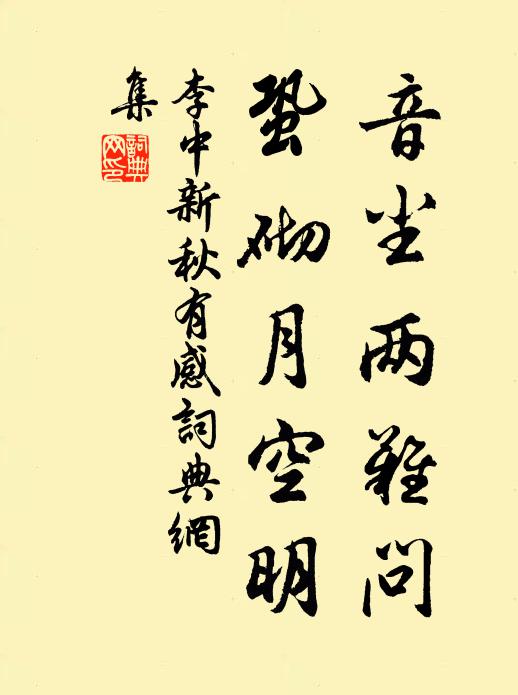 音尘两难问
蛩砌月空明
李中新秋有感詞典網
集
詞典
网印